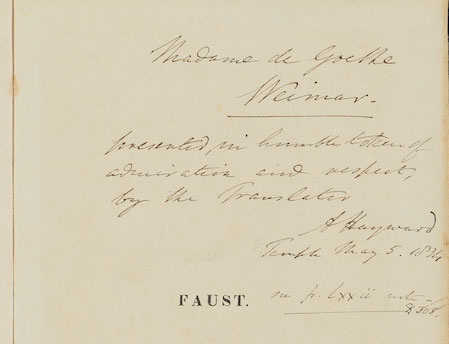 Madame de Goethe
Weimar.
presented, in humble token of
admiration and respect,
by the Translator
A Hayward
Temple May 5. 1834
FAUST.
see p. lxxii note
& 868